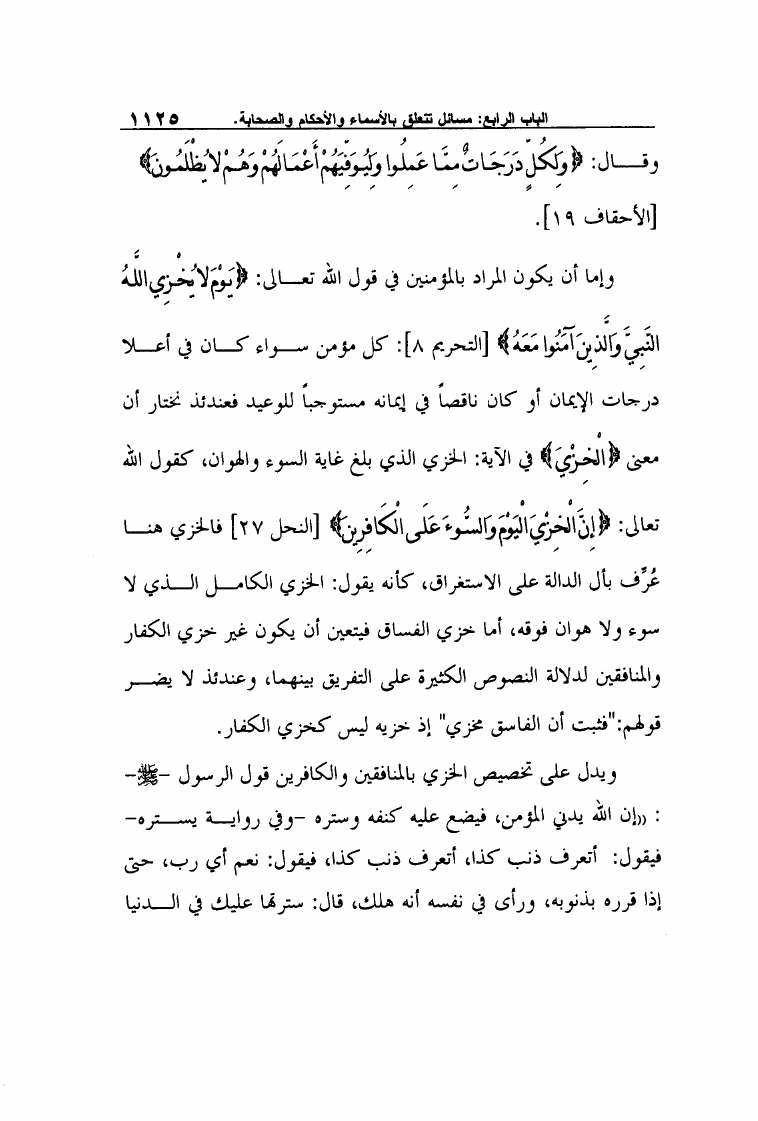 الباب الرابع: مسائل تتعلق بالأسماء والأحكام والصحابة. ١١٢٥
وقـــال: ﴿وَلِكُلٍّ دَرَجَاتٌ مِمَّا عَمِلُوا وَلِيُوَفِّيَهُمْ أَعْمَالَهُمْ وَهُمْ لا يُظْلَمُونَ﴾
[الأحقاف ١٩].
وإما أن يكون المراد بالمؤمنين في قول الله تعـــالى: ﴿يَوْمَ لا يُخْزِي اللَّهُ
النَّبِيَّ وَالَّذِينَ آمَنُوا مَعَهُ﴾ [التحريم ٨]: كل مؤمن ســواء كـــان في أعـــلا
درجات الإيمان أو كان ناقصاً في إيمانه مستوجباً للوعيد فعندئذ نختار أن
معنى ﴿الْخِزْيَ﴾ في الآية: الخزي الذي بلغ غاية السوء والهوان، كقول الله
تعالى: ﴿إِنَّ الْخِزْيَ الْيَوْمَ وَالسُّوءَ عَلَى الْكَافِرِينَ﴾ [النحل ٢٧] فالخزي هنـــا
عُرِّف بأل الدالة على الاستغراق، كأنه يقول: الخزي الكامـــل الـــذي لا
سوء ولا هوان فوقه، أما خزي الفساق فيتعين أن يكون غير خزي الكفار
والمنافقين لدلالة النصوص الكثيرة على التفريق بينهما، وعندئذ لا يضـــر
قولهم:"فثبت أن الفاسق مخزي" إذ خزيه ليس كخزي الكفار.
ويدل على تخصيص الخزي بالمنافقين والكافرين قول الرسول -ﷺ-
: ((إن الله يدني المؤمن، فيضع عليه كنفه وستره -وفي روايـــة يســـتره-
فيقول: أتعرف ذنب كذا، أتعرف ذنب كذا، فيقول: نعم أي رب، حتى
إذا قرره بذنوبه، ورأى في نفسه أنه هلك، قال: سترتها عليك في الـــدنيا